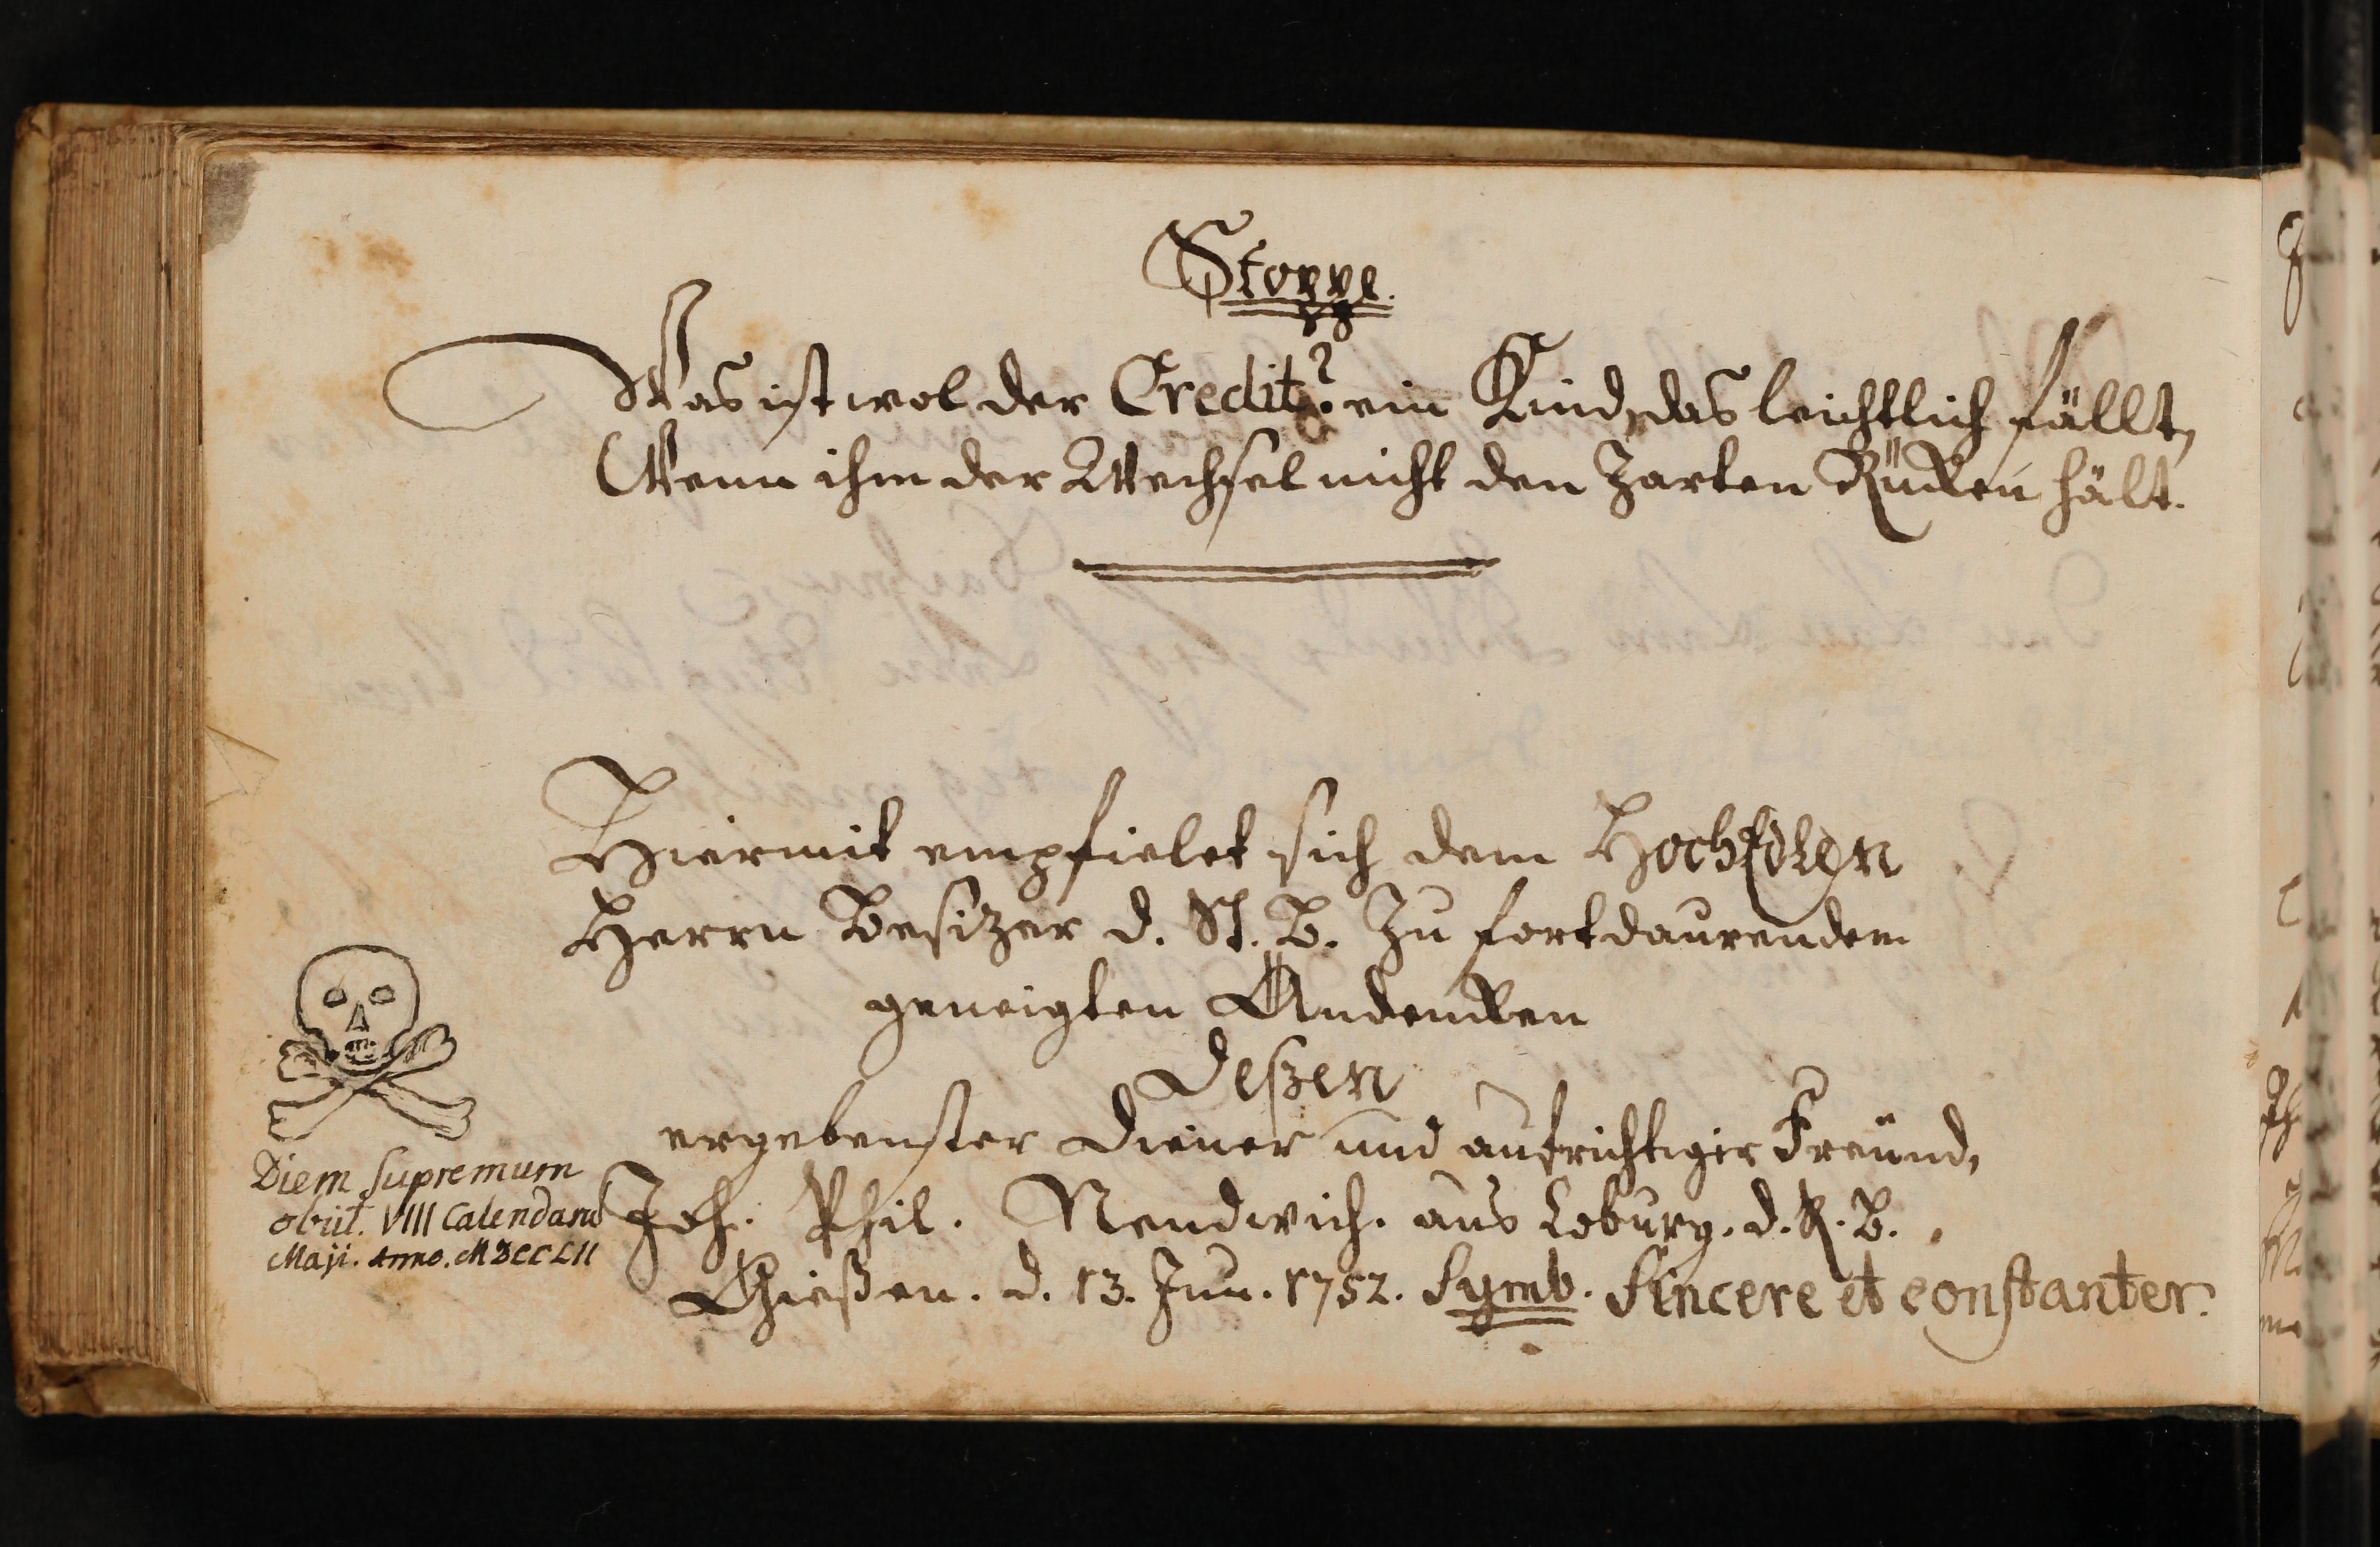 Stoppe.
Was ist wol der Credit? ein Kind, das leichtlich fällt,
Wenn ihm der Wechsel nicht den zarten Rücken hält.
Hiermit empfielet sich dem HochEdlen
Herrn Besitzer d. St. B. zu fortdaurendem
geneigten Andencken
Deßen
ergebenster Diener und aufrichtiger Freünd,
Joh. Phil. Mendwich. aus Coburg. d. R. B.
Gießen. d. 13. Jun. 1752. Symb. Sincere et constanter.
Diem supremum
obiit. VIII Calendarus
Maji. Anno. MDCCLII